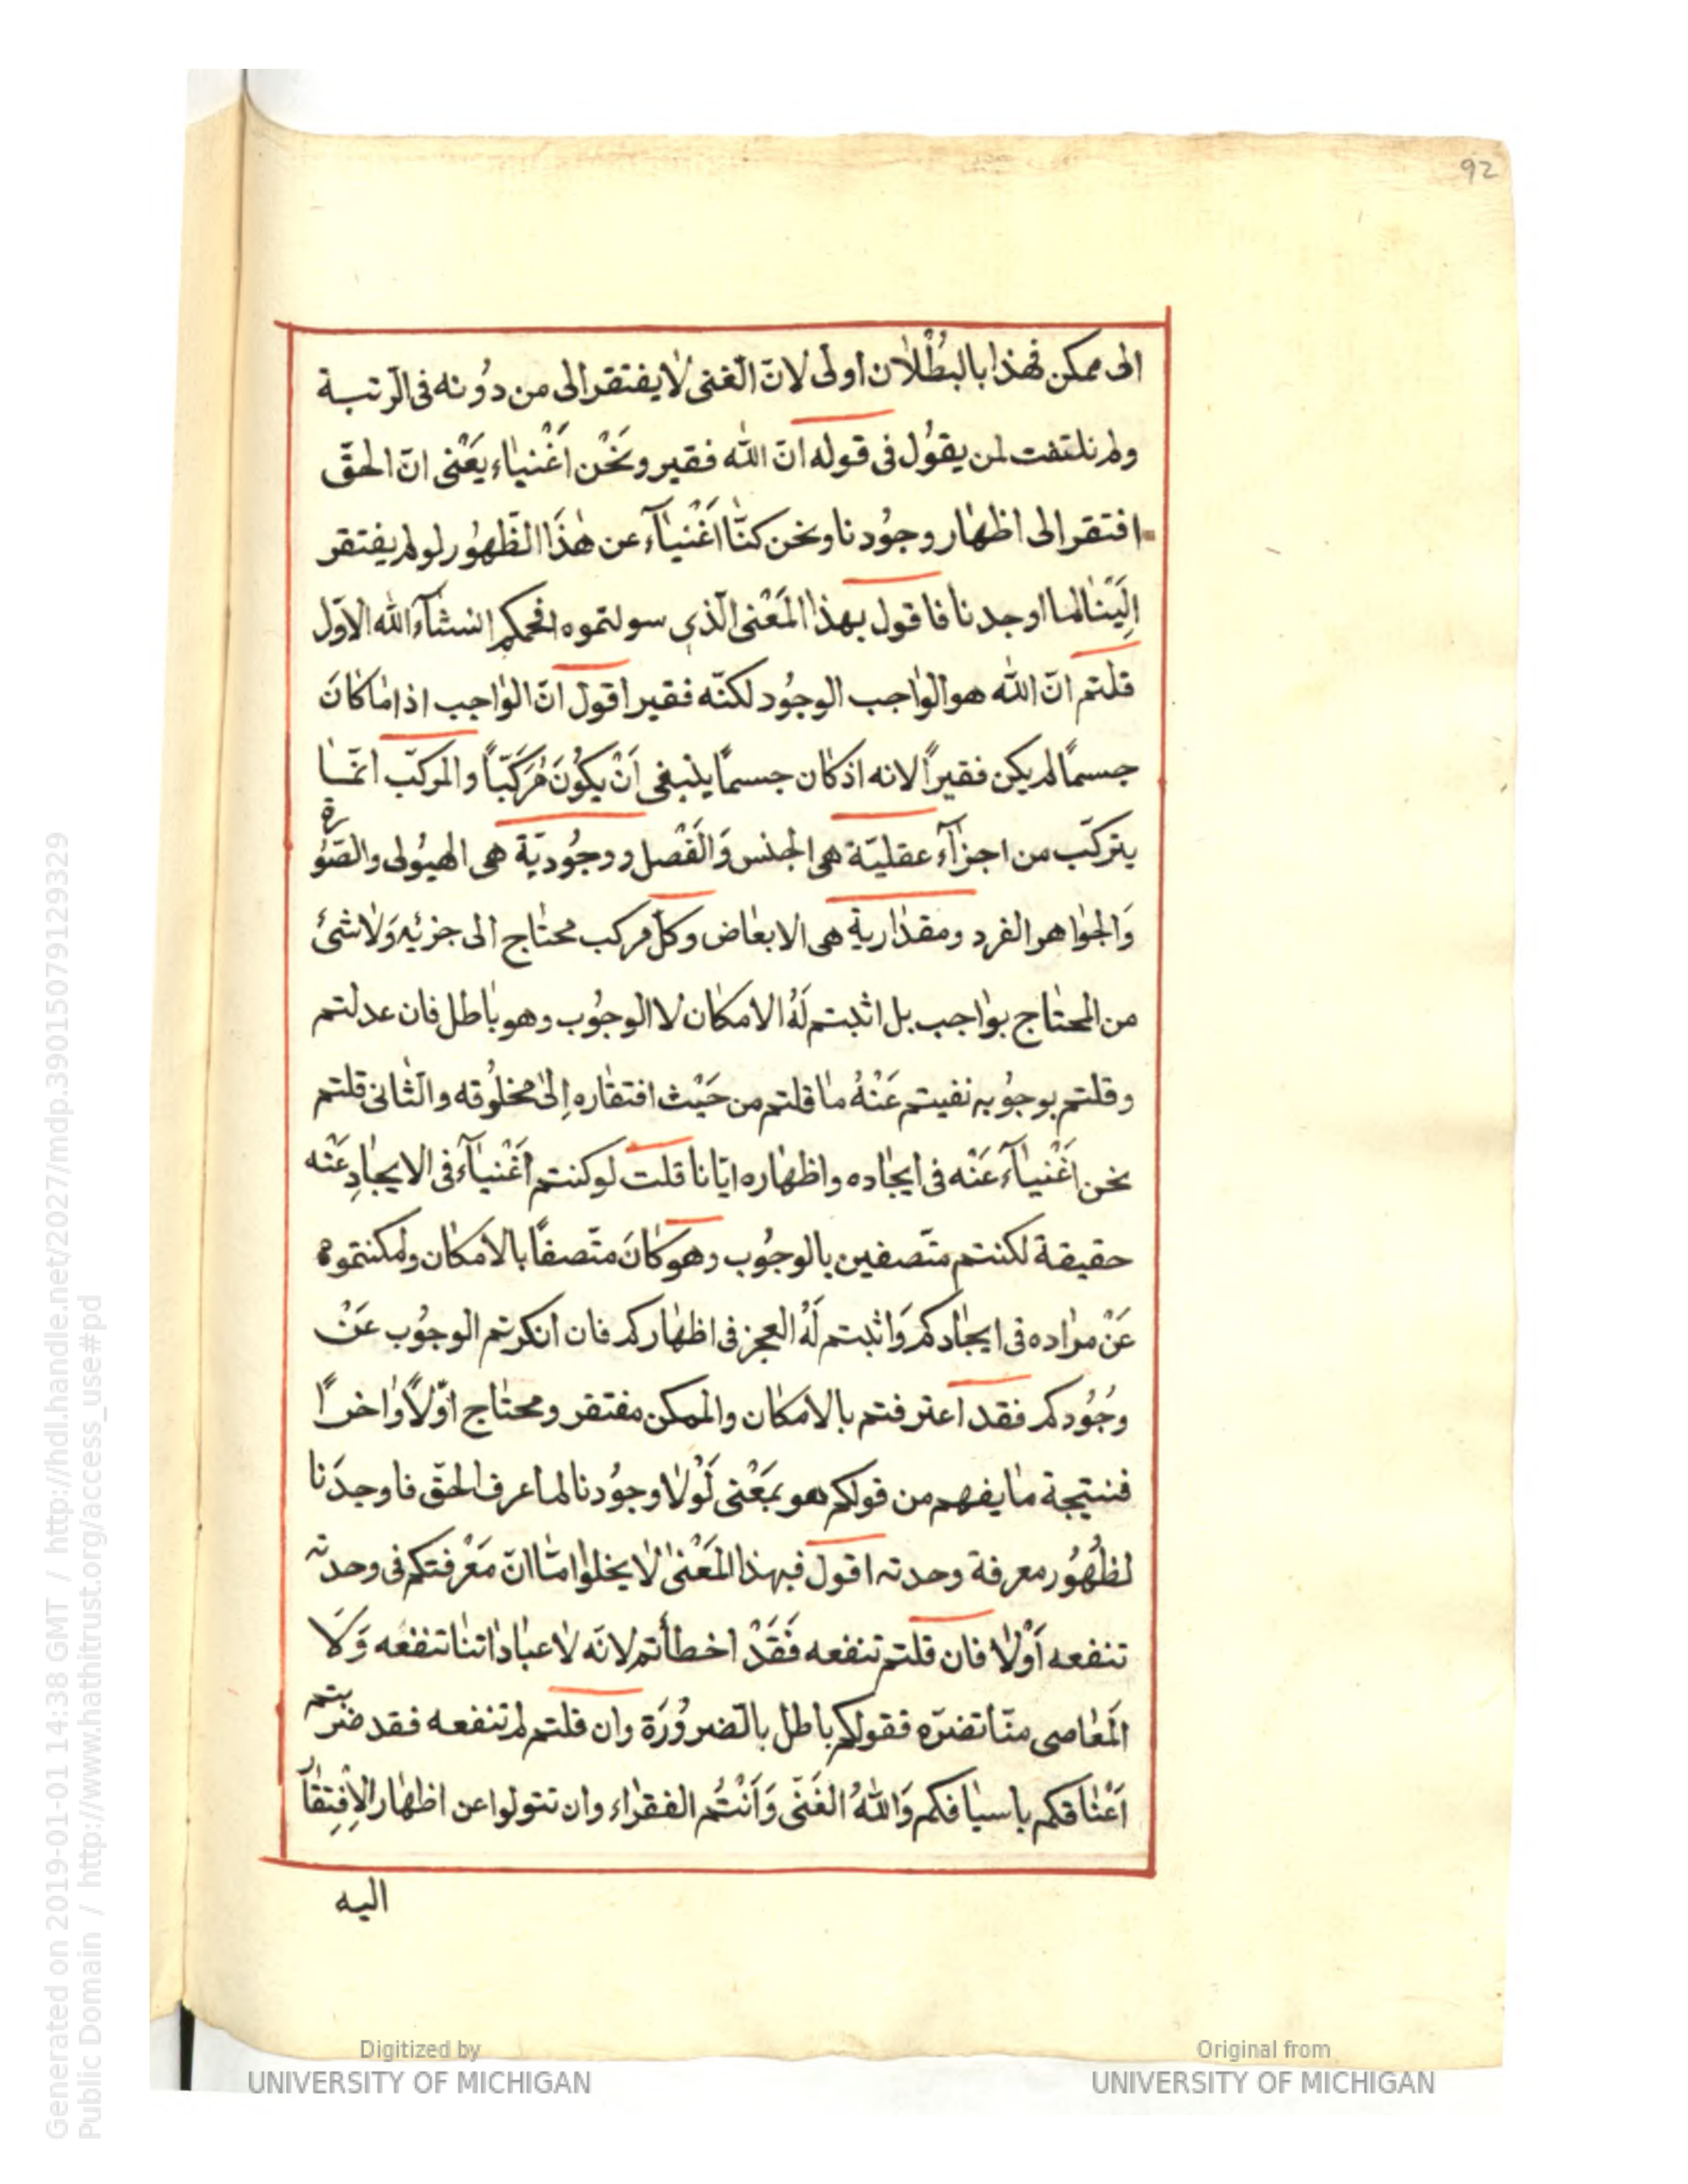 92
الى ممكن فهذا بالبُطْلاٰن اولٰى لانّ الّغنى لاٰ يفتقر الى من دُونه فى الرّتبة
ولم نلتفت لمن يقوُل فى قوله انّ الله فقير ونَحْن اَغْنيٰاء يَعْنى انّ الحقّ
افتقر الى اظهٰار وجوُدنا ونحن كنّٰا اَغْنيٰآء عن هٰذَا الظّهوُر لو لم يفتقر
اِلَيْنٰا لما اوجدنا فاقول بهذا المَعْنى الّذى سولتموه افحمكم انشآء الله الاوّل
قلتم انّ الله هو الوٰاجب الوجوُد لكنّه فقير اقول انّ الوٰاجب اذ امٰا كٰانَ
جسمًا لم يكن فقيراً لانه اذ كٰان جسمًا ينبغى اَنْ يكوُنَ مُرَكَّبًا والمركّب انّمٰا
يتركّب من اجزٰآء عقليّة هى الجنس وَالفَصْل ووجوُديّة هى الهيوُلى والصّوُرة
وَالجوٰاهر الفرد ومقدٰارية هى الابعٰاض وكلّ مركب محتٰاج الى جزئِهِ وَلاٰ شئ
من المحتٰاج بوٰاجب بل اثبتم لَهُ الامكٰان لا الوجوُب وهو بٰاطل فان عدلتم
وقلتم بوجوُبه نفيتم عَنْهُ مٰا قلتم من حَيْث افتقٰاره اِلىٰ مخلوُقه والثّانى قلتم
نحن اَغْنيٰآء عَنْه فى ايجٰاده واظهٰاره ايّانا قلت لو كنتم اَغْنيٰآء فى الايجٰادِ عَنْه
حقيقة لكنتم متّصفين بالوجوُب وهو كٰانَ متّصفًا بالامكٰان ولمكنتموه
عَنْ مرٰاده فى ايجٰادكم وَاثبتم لَهُ العجز فى اظهٰاركم فان انكرتم الوجوُب عَنْ
وجُوُدكم فقد اعترفتم بالامكٰان والممكن مفتقر ومحتٰاج اوّلاً وٰاخرًا
فنتيجة مٰا يفهم من قولكم هو بمَعْنى لَوْلاٰ وجوُدنا لما عرف الحقّ فاوجدَنا
لظُهُوُر معرفة وحدته اقول فبهذا المَعْنىٰ لاٰ يخلوا امّٰا انّ مَعْرفتكم فى وحدته
تنفعه اَوْلاٰ فان قلتم تنفعه فَقَدْ اخطأتم لانّه لاٰ عبٰادٰاتنٰا تنفعه وَلاَ
المَعٰاصى منّٰا تضرّه فقولكم باطل بالّضروُرَة وان قلتم لم تنفعه فقد ضربتم
اَعْنٰاقكم باسيٰافكم وَاللهُ الغَنّى وَاَنْتُم الفقرٰاء وان تتولوا عن اظهٰار الاِفْتِقٰار
اليه
Digitized by
UNIVERSITY OF MICHIGAN
Original from
UNIVERSITY OF MICHIGAN
Generated on 2019-01-01 14:38 GMT / http://hdl.handle.net/2027/mdp.39015079129329
Public Domain / http://www.hathitrust.org/access_use#pd